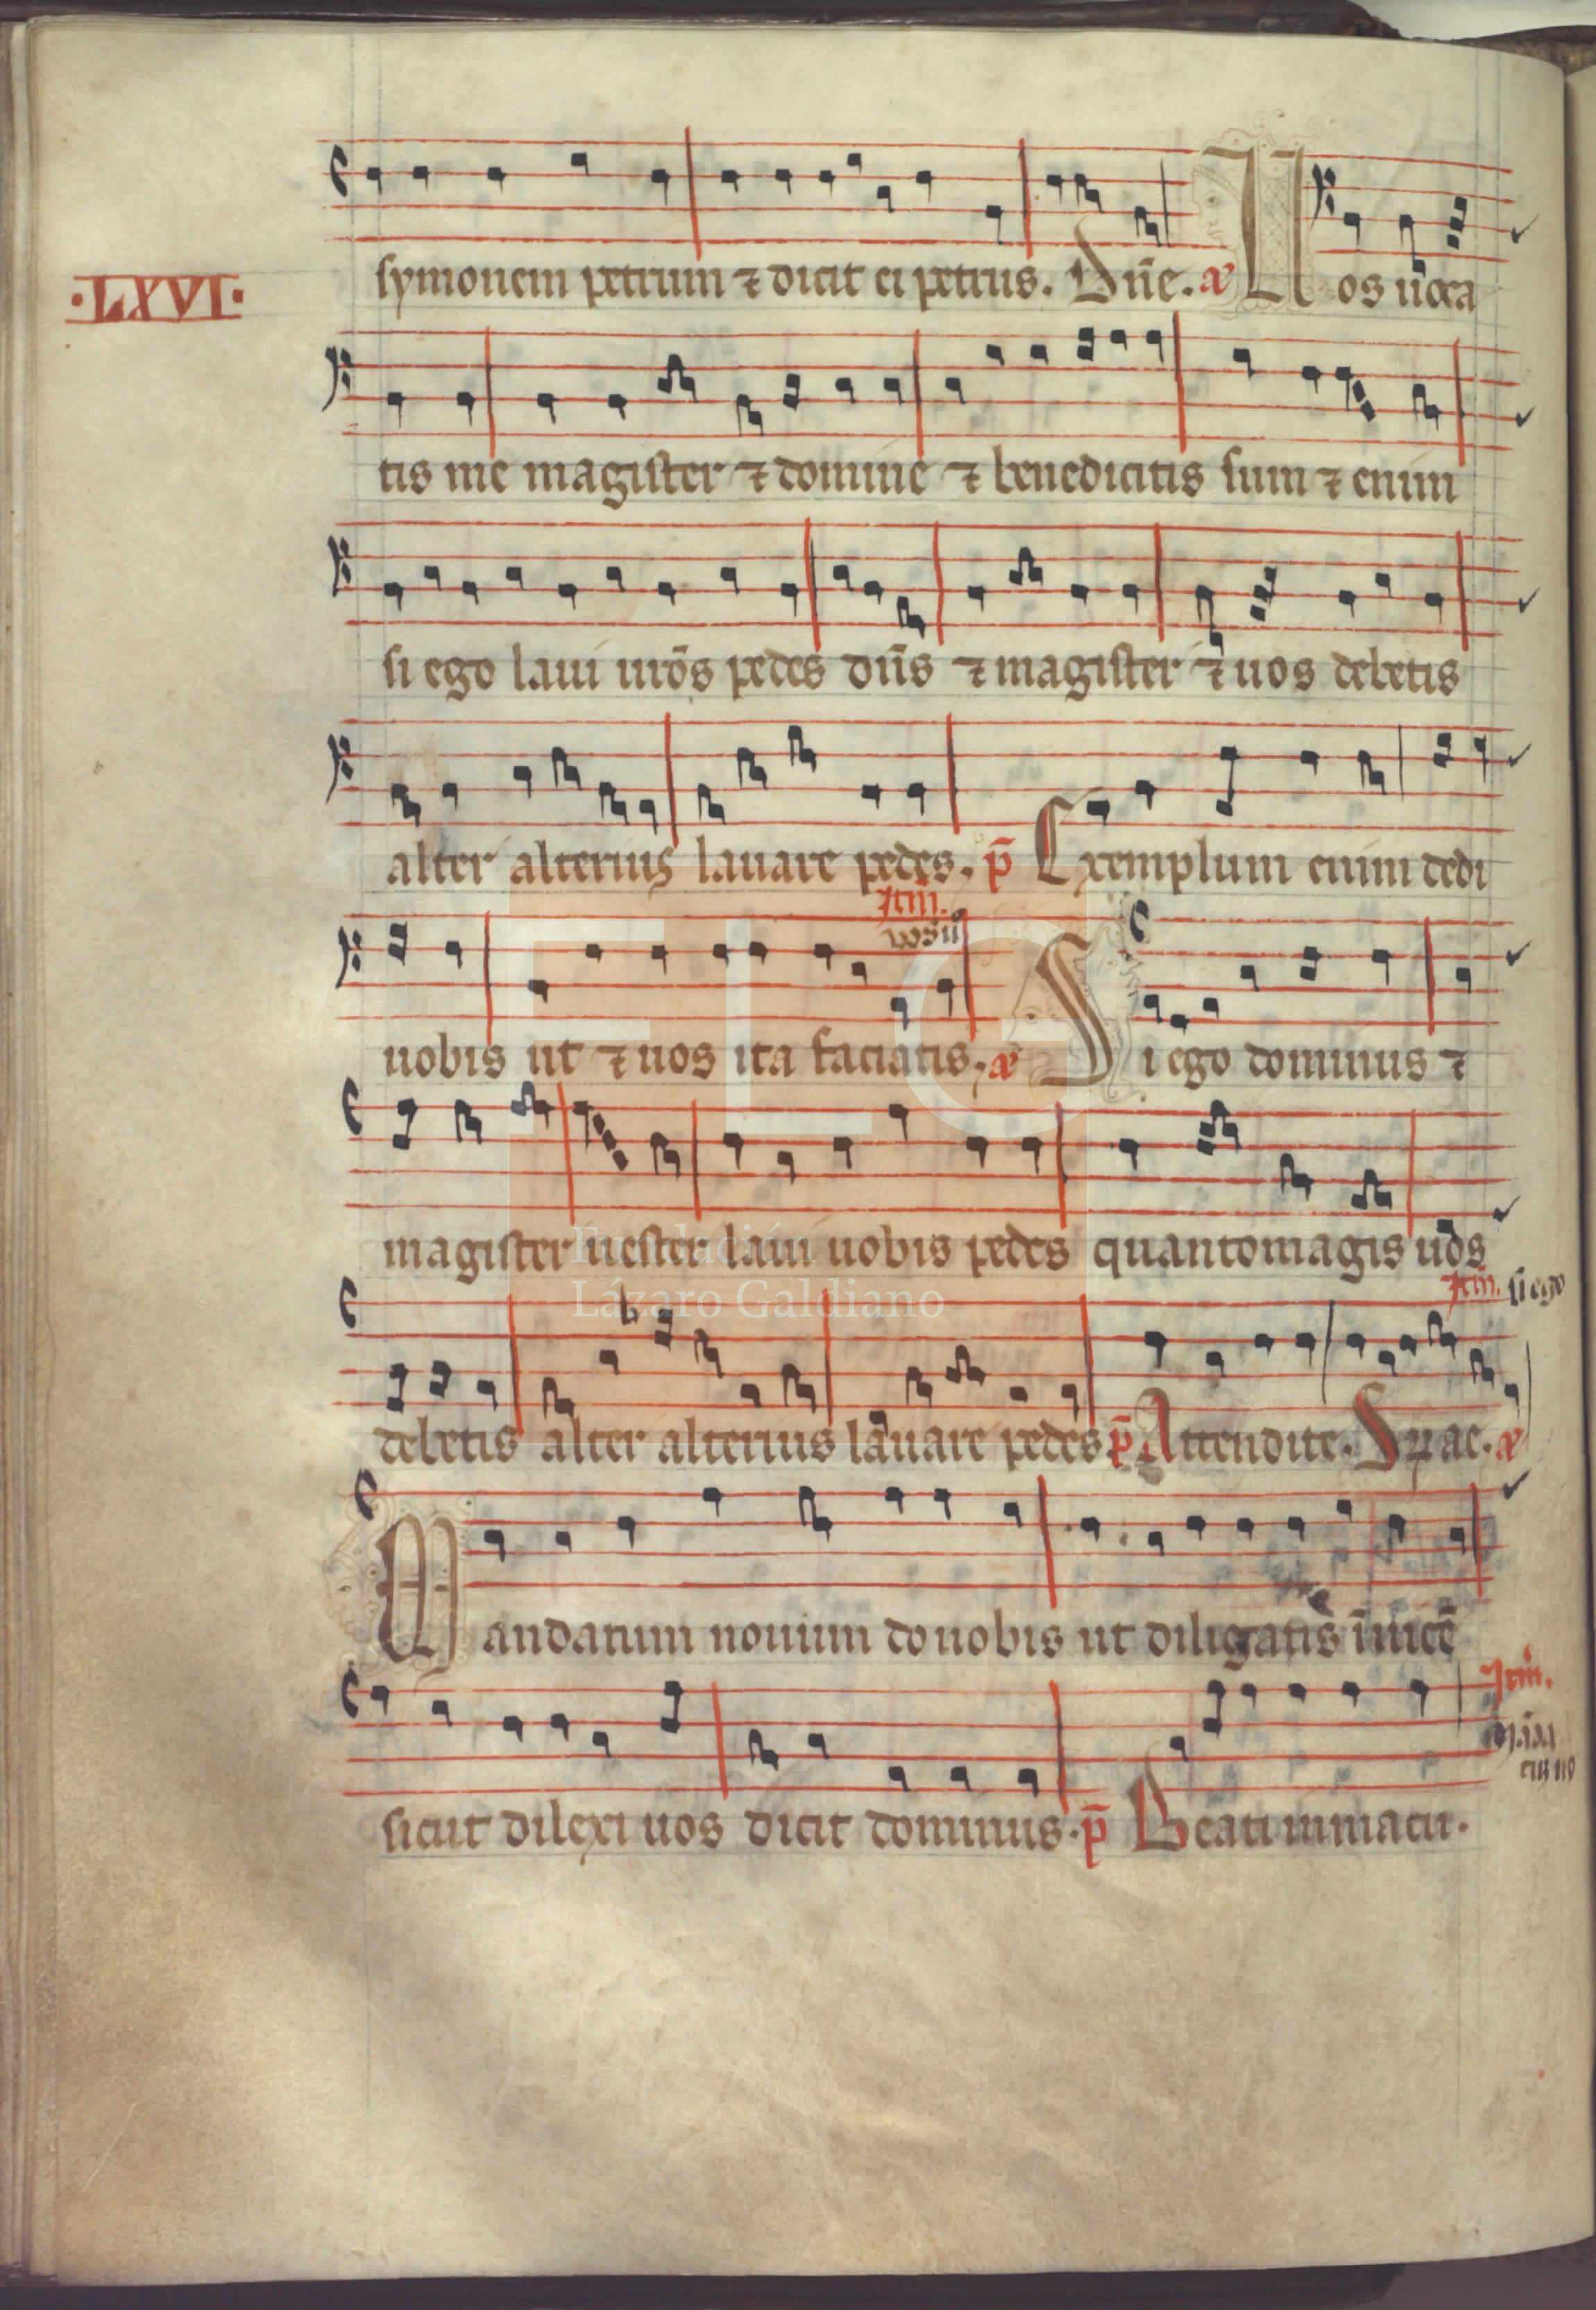 symonem petrum ⁊ dicit ei petrus. Dn̄e. ꝶ Uos uoca
·LXVI·
tis me magister ⁊ domine ⁊ benedicitis sum ⁊ enim
si ego laui ur̄os pedes dn̄s ⁊ magister ⁊ uos debetis
alter alterius lauare pedes. p̄ Exemplum enim dedi
uobis ut ⁊ uos ita faciatis.
Si ego dominus ⁊
magister uester laui uobis pedes quantomagis uos
si ego
debetis alter alterius lauare pedes p̄ Attendite.
Mandatum nouum do uobis ut diligatis inuicē
sicut dilexi uos dicit dominus. p̄ Beati inmacu.
Lázaro Galdiano